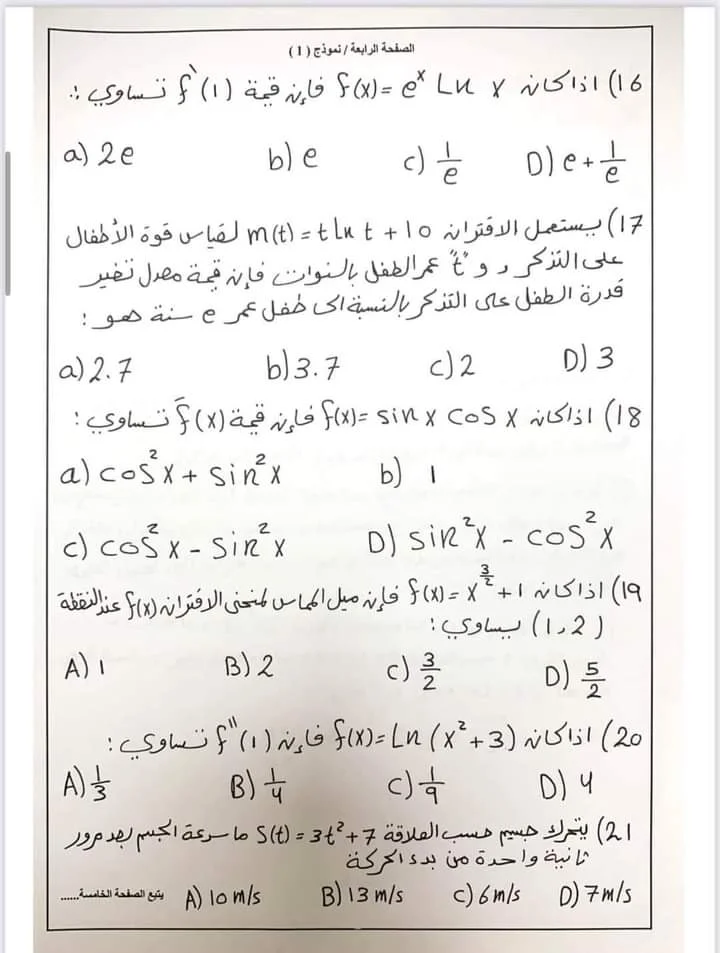 الصفحة الرابعة / نموذج (1)
16) اذا كان f(x) = eˣ Ln x فإن قيمة f'(1) تساوي :
a) 2e b) e c) 1/e D) e + 1/e
17) يستعمل الاقتران m(t) = t Ln t + 10 لقياس قوة الأطفال
على التذكر و "t" عمر الطفل بالسنوات فإن قيمة معدل تغير
قدرة الطفل على التذكر بالنسبة الى طفل عمر e سنة هو :
a) 2.7 b) 3.7 c) 2 D) 3
18) اذا كان f(x) = sin x cos x فإن قيمة f'(x) تساوي :
a) cos²x + sin²x b) 1
c) cos²x - sin²x D) sin²x - cos²x
19) اذا كان f(x) = x^(3/2) + 1 فإن ميل المماس لمنحنى الاقتران f(x) عند النقطة
(1،2) يساوي :
A) 1 B) 2 c) 3/2 D) 5/2
20) اذا كان f(x) = Ln (x² + 3) فإن f''(1) تساوي :
A) 1/3 B) 1/4 c) 1/9 D) 4
21) يتحرك جسيم حسب العلاقة S(t) = 3t² + 7 ما سرعة الجسم بعد مرور
ثانية واحدة من بدء الحركة
A) 10 m/s B) 13 m/s c) 6 m/s D) 7 m/s
يتبع الصفحة الخامسة......